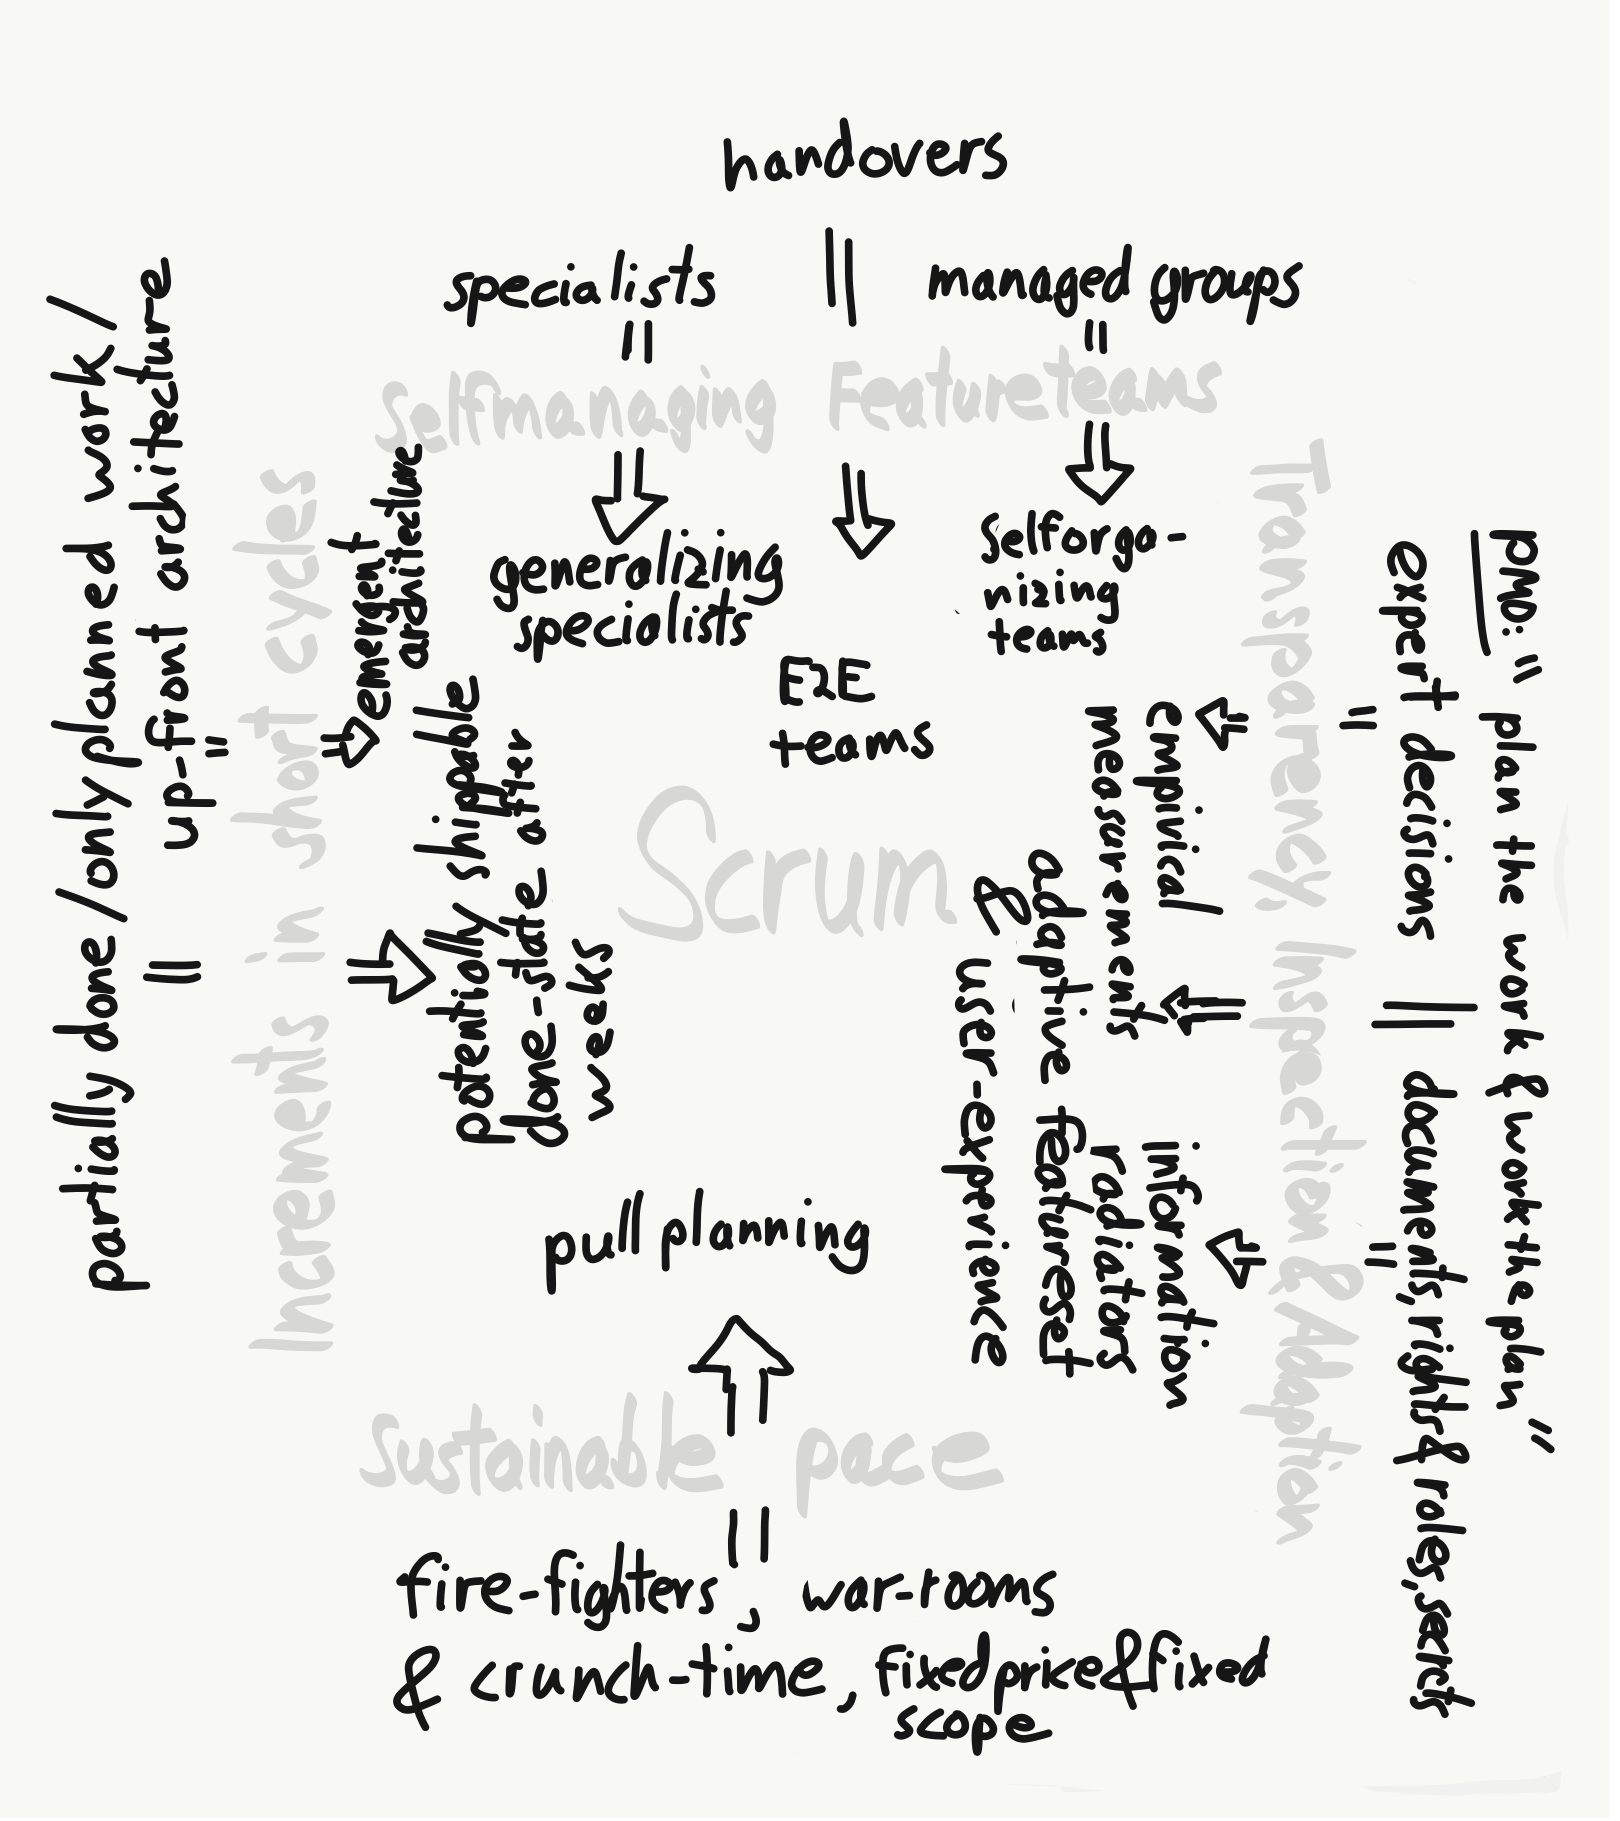 handovers
specialists
managed groups
Selfmanaging Featureteams
generalizing
specialists
E2E
teams
selforga-
nizing
teams
partially done/only planned work/
up-front architecture
Increments in short cycles
emergent
architecture
potentially shippable
done-state after
weeks
Scrum
PMO: " plan the work & work the plan "
expert decisions
documents, rights & roles, secrets
Transparency Inspection & Adaption
empirical
measurements
information
radiators
adaptive featureset
& user-experience
pull planning
Sustainable pace
fire-fighters, war-rooms
& crunch-time, fixed price & fixed
scope